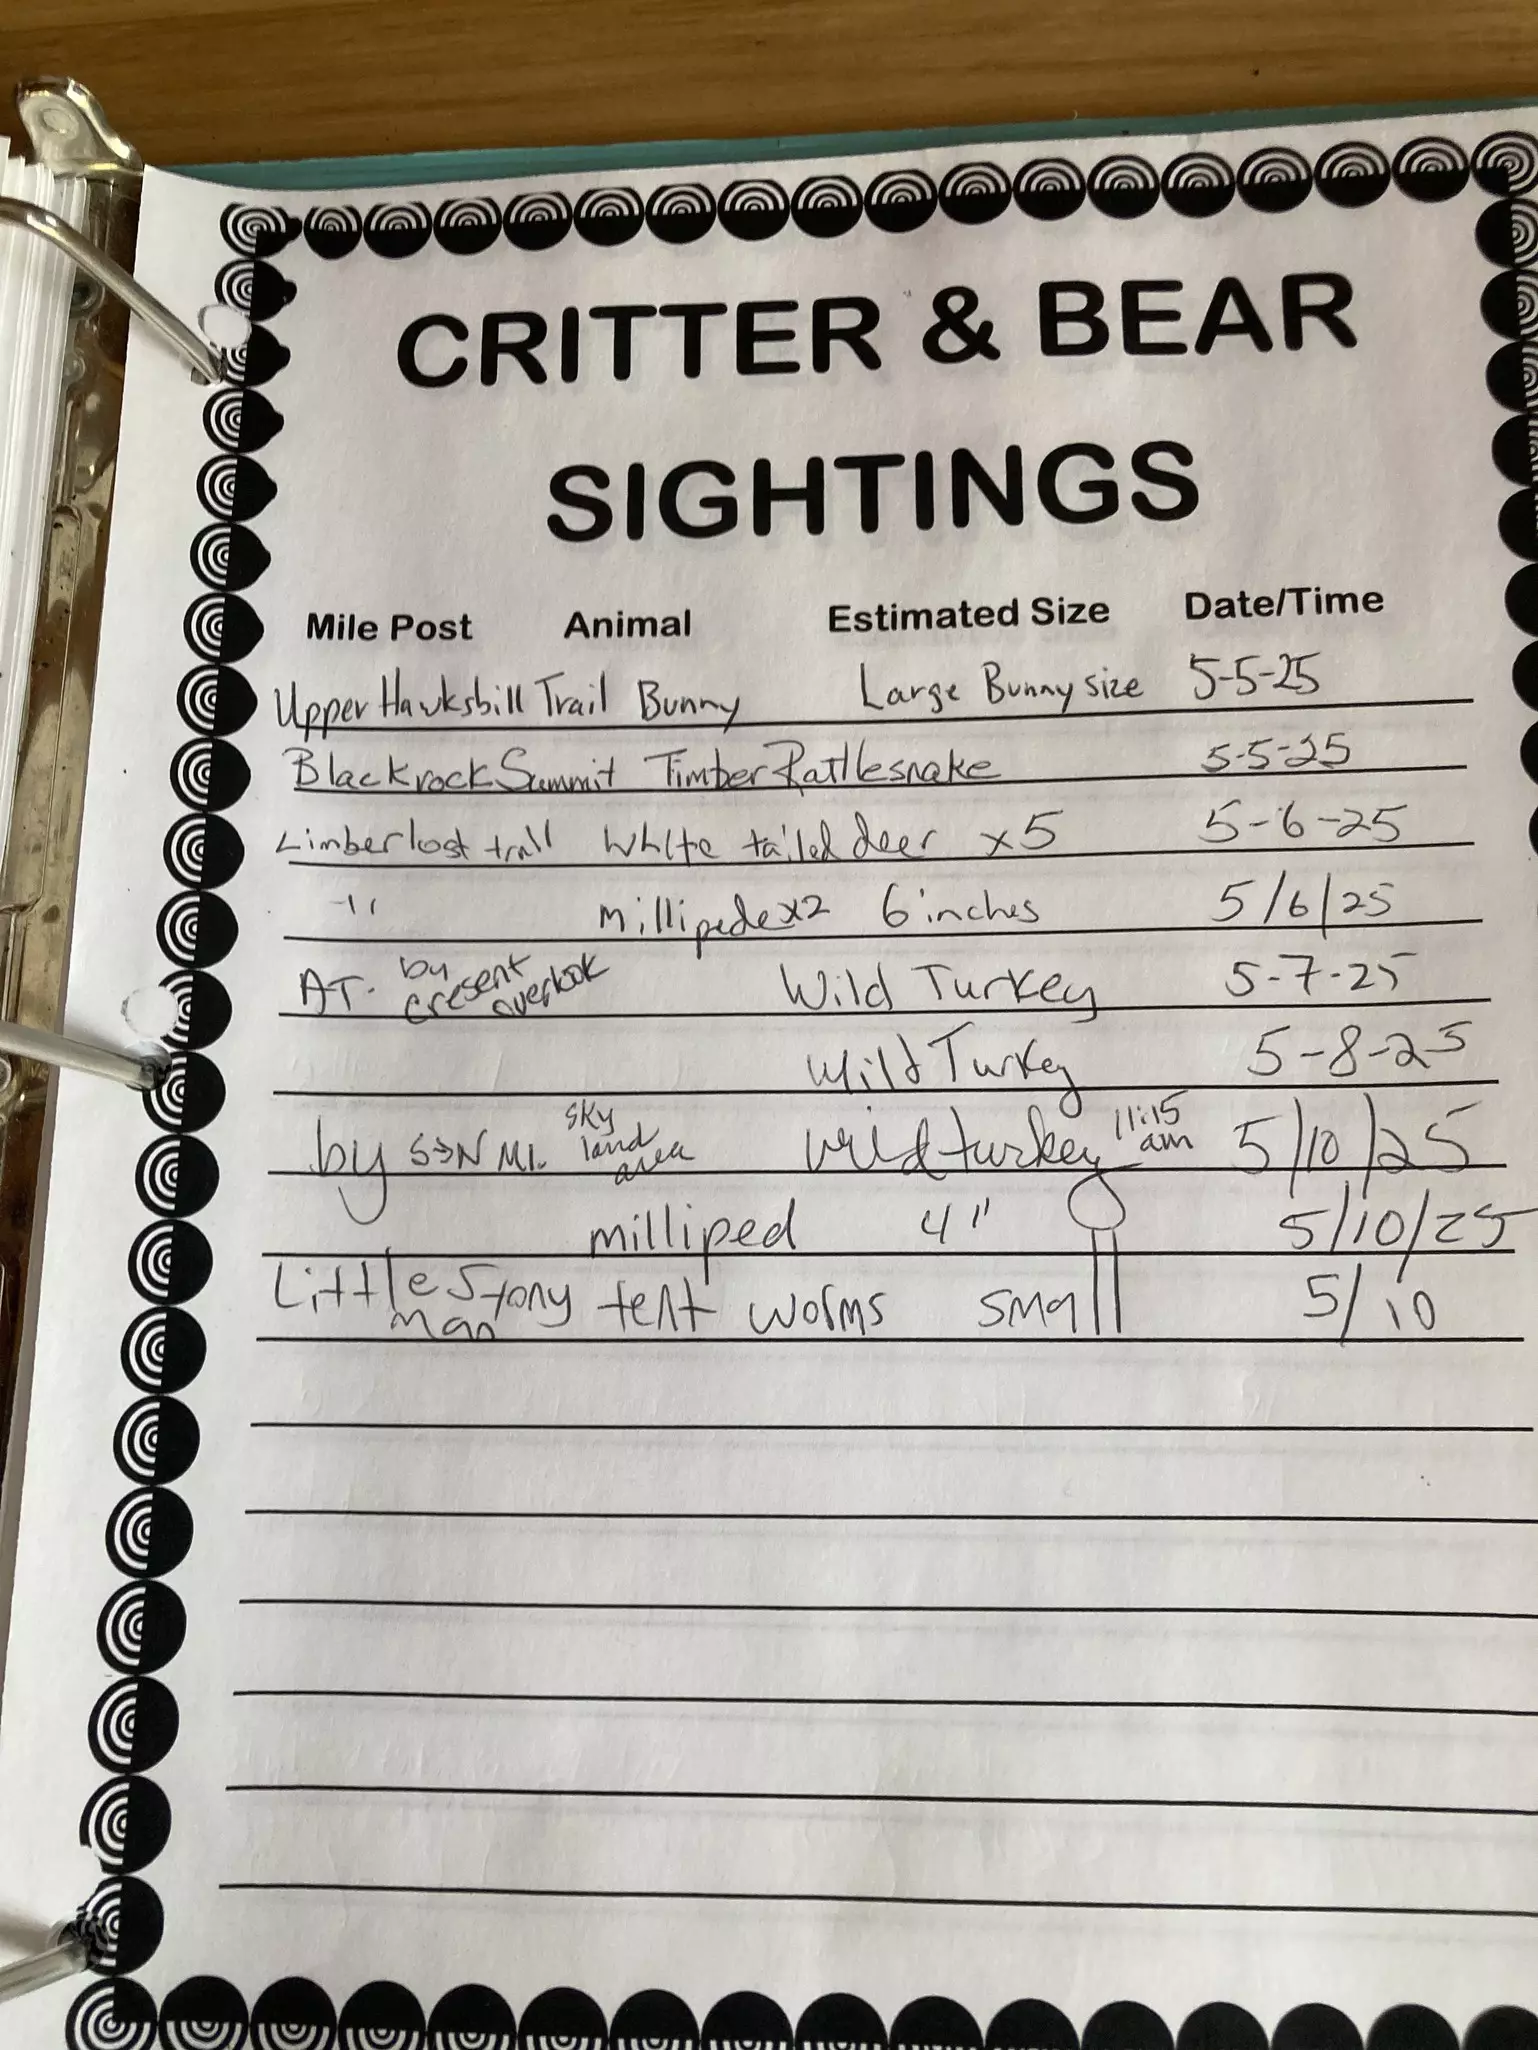 CRITTER & BEAR
SIGHTINGS
Mile Post Animal Estimated Size Date/Time
Upper Hawksbill Trail Bunny Large Bunny size 5-5-25
Blackrock Summit Timber Rattlesnake 5-5-25
Limberlost trail White tailed deer x5 5-6-25
-11 Millipede x2 6 inches 5/6/25
AT. by cresent overlook Wild Turkey 5-7-25
Wild Turkey 5-8-25
by S→N MI. Sky land area wild turkey 11:15 am 5/10/25
milliped 4" 5/10/25
Little Stony man tent worms small 5/10